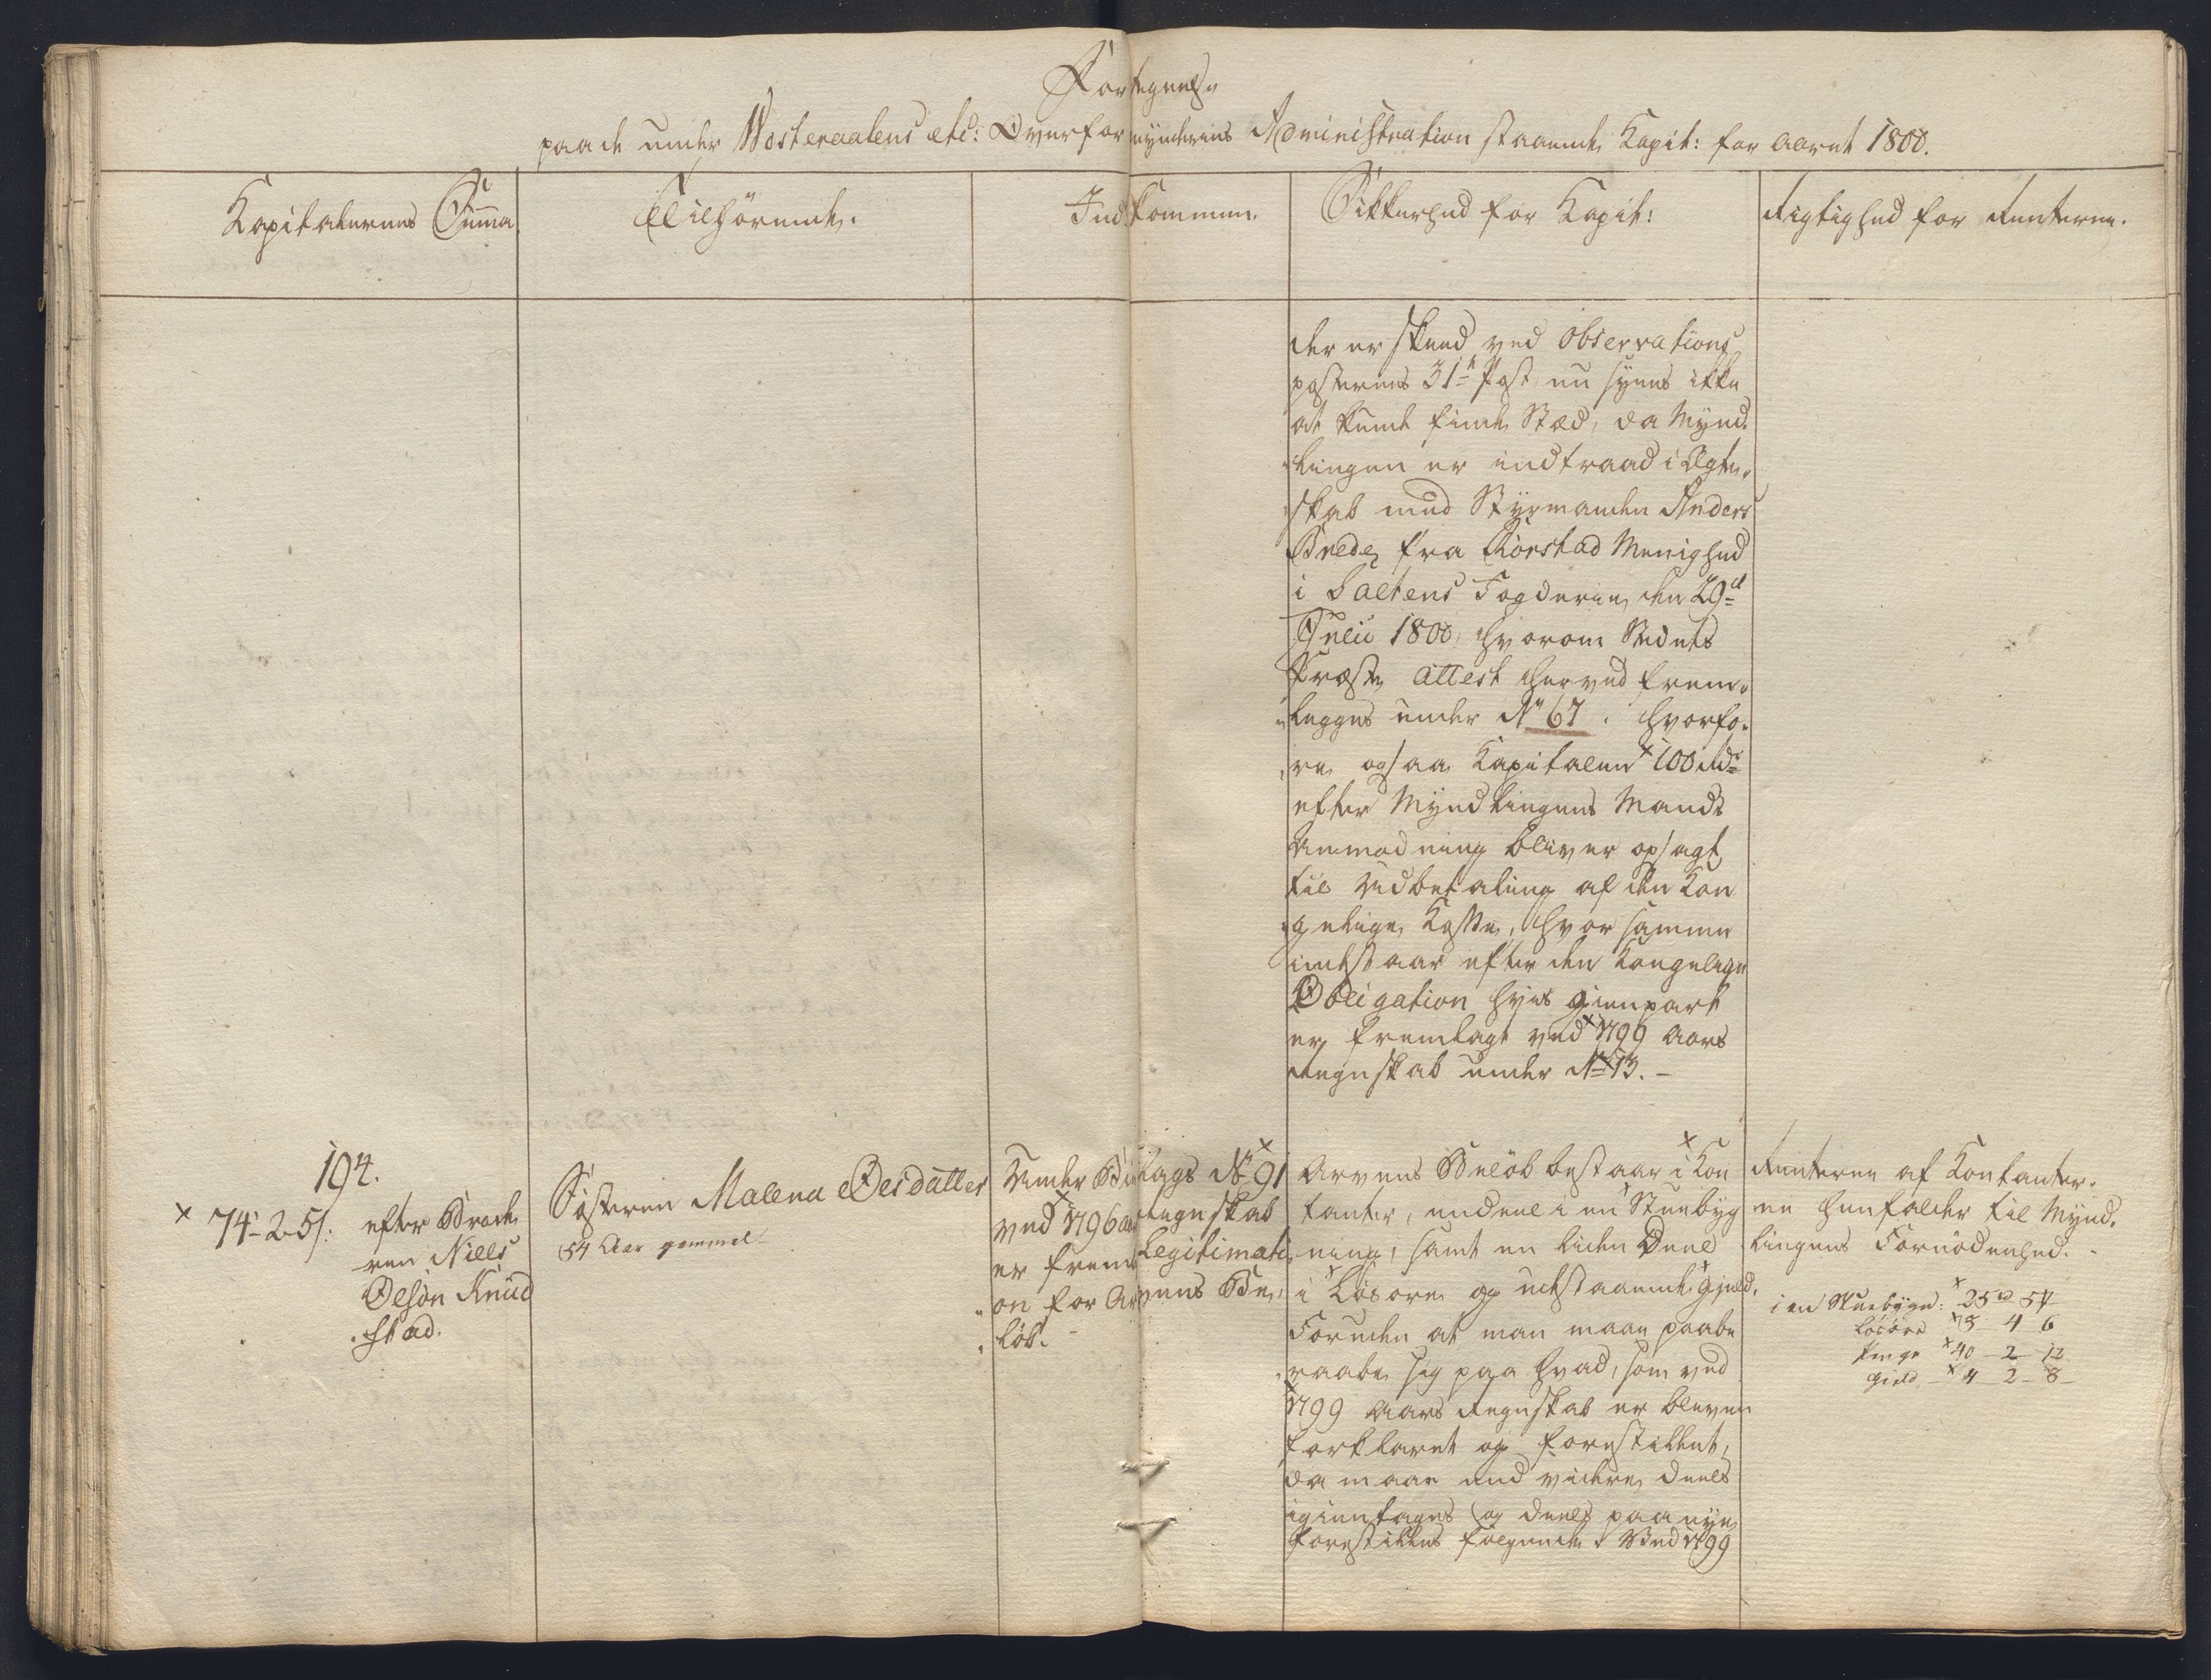 Fortegnelse
paa de under Westeraalens etc: Overformynderies Administration staaende Kapit: for Aaret 1800.
Kapitalernes Summa
Tilhörende.
Indkommen.
Sikkerhed for Kapit:
Rigtighed for Renterne.
der er skeed ved Observations
posternes 31te Post, nu synes ikke
at kunde finde Sted, da Mynd-
lingen er indtraad i Ægte-
skab med Styrmanden Anders
Brede fra Rörstad Menighed
i Saltens Fogderie den 29de
Julii 1800, hvorom Stedets
Præste Attest herved frem-
legges under No 67. hvorfo-
re ogsaa Kapitalen 100 rdr
efter Myndlingens Mands
Anmodning bliver opsagt
til Udbetaling af den Kon
gelige Kasse, hvor samme
indestaar efter den Kongelige
Obligation hvis Gienpart
er fremlagt ved 1799 Aars
Regnskab under No 13. -
194.
74-2-5s: efter Brode
ren Niels
Olsön Knud
stad.
Sösteren Malena Olsdatter
54 Aar gammel
Under Bilags No 91
ved 1796 Aars Regnskab
er frem Legitimati
on for Arvens Be-
löb.
Arvens Belöb bestaar i Kon
tanter, endeel i en Stuebyg
ning, samt en liden Deel
i Lösöre og udestaaende Gjeld.
Foruden at man maae paabe
raabe sig paa hvad, som ved
1799 Aars Regnskab er bleven
forklaret og forestillet,
da maae end videre deels
igientages og deels paa nye
forestilles fölgende: Ved 1799
Renterne af Kontanter-
ne henfalder til Mynd-
lingens Fornödenhed. -
i en Stuebygn: 25 rd 5 4
Lösöre 3 4 6
Penge 40 - 2 - 12
Gield - 4 2 - 8 -